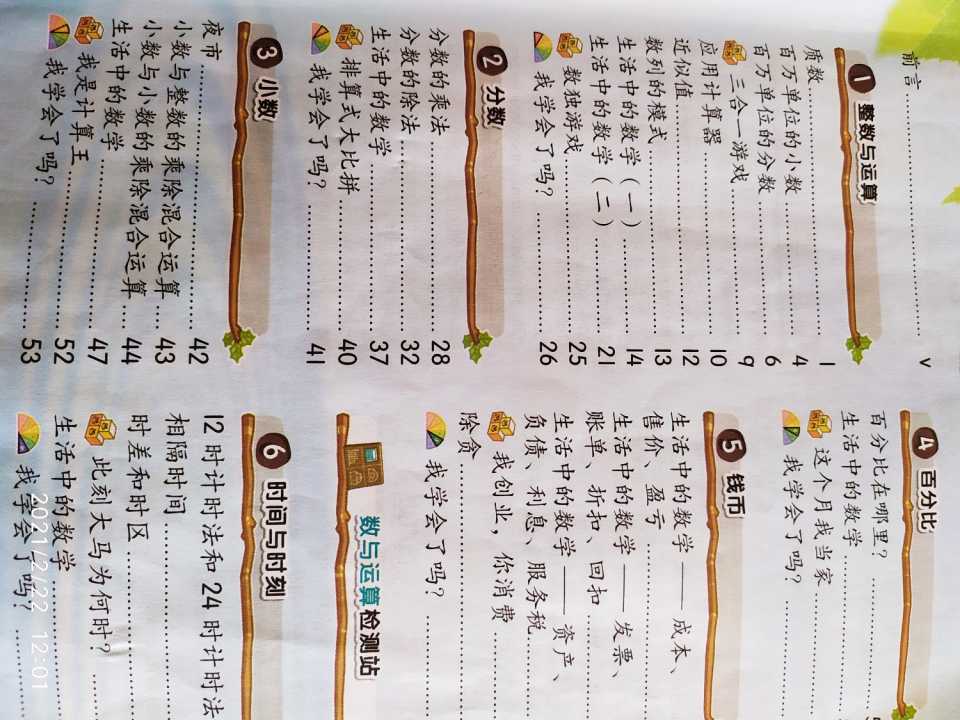 前言 v
1 整数与运算
质数 1
百万单位的小数 4
百万单位的分数 6
三合一游戏 9
应用计算器 10
近似值 12
数列的模式 13
生活中的数学（一） 14
生活中的数学（二） 21
数独游戏 25
我学会了吗？ 26
2 分数
分数的乘法 28
分数的除法 32
生活中的数学 37
排算式大比拼 40
我学会了吗？ 41
3 小数
夜市 42
小数与整数的乘除混合运算 43
小数与小数的乘除混合运算 44
生活中的数学 47
我是计算王 52
我学会了吗？ 53
4 百分比
百分比在哪里？
生活中的数学
这个月我当家
我学会了吗？
5 钱币
生活中的数学——成本、
售价、盈亏
生活中的数学——发票、
账单、折扣、回扣
生活中的数学——资产、
负债、利息、服务税、
我创业，你消费
除贪
我学会了吗？
数与运算检测站
6 时间与时刻
12 时计时法和 24 时计时法
相隔时间
时差和时区
此刻大马为何时？
生活中的数学
我学会了吗？
2021/2/22 12:01